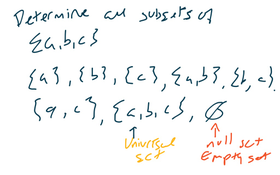 Determine all subsets of
{a,b,c}
{a}, {b}, {c}, {a,b}, {b,c},
{a,c}, {a,b,c}, ∅
Universal set
null set
Empty set